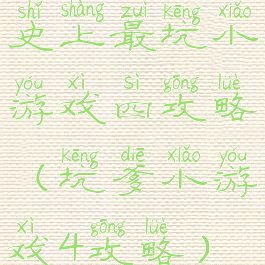 shǐ shàng zuì kēng xiǎo
史上最坑小
yóu xì sì gōng lüè
游戏四攻略
kēng diē xiǎo yóu
（坑爹小游
xì gōng lüè
戏4攻略）